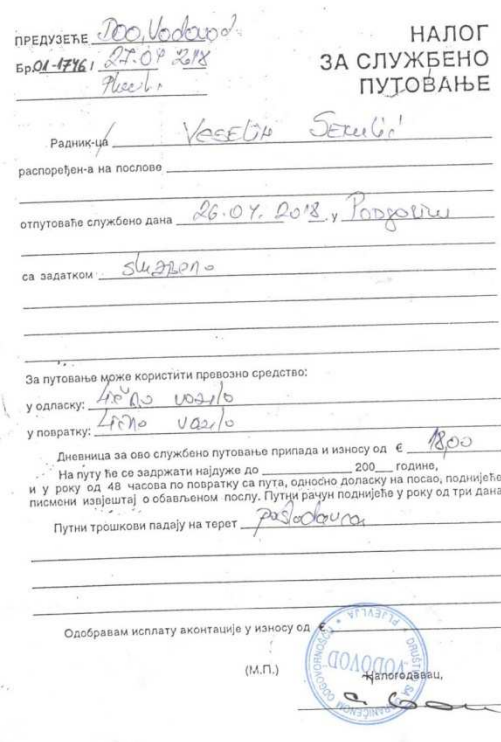 ПРЕДУЗЕЋЕ DOO, Vodovod
Бр. 01-1746/ 27.04 2018
НАЛОГ
ЗА СЛУЖБЕНО
ПУТОВАЊЕ
Радник-ца Veselin Sekulić
распоређен-а на послове
отпутоваће службено дана 26.04.2018, у Podgoricu
са задатком službeno
За путовање може користити превозно средство:
у одласку: Lično vozilo
у повратку: Lično vozilo
Дневница за ово службено путовање припада и износу од € 18,00
На путу ће се задржати најдуже до 200 године,
и у року од 48 часова по повратку са пута, односно доласку на посао, поднијеће
писмени извјештај о обављеном послу. Путни рачун поднијеће у року од три дана
Путни трошкови падају на терет poslodavca
Одобравам исплату аконтације у износу од €
(М.П.)
Налогодавац,
DRUŠTVO SA OGRANIČENOM ODGOVORNOŠĆU
"VODOVOD"
PLJEVLJA